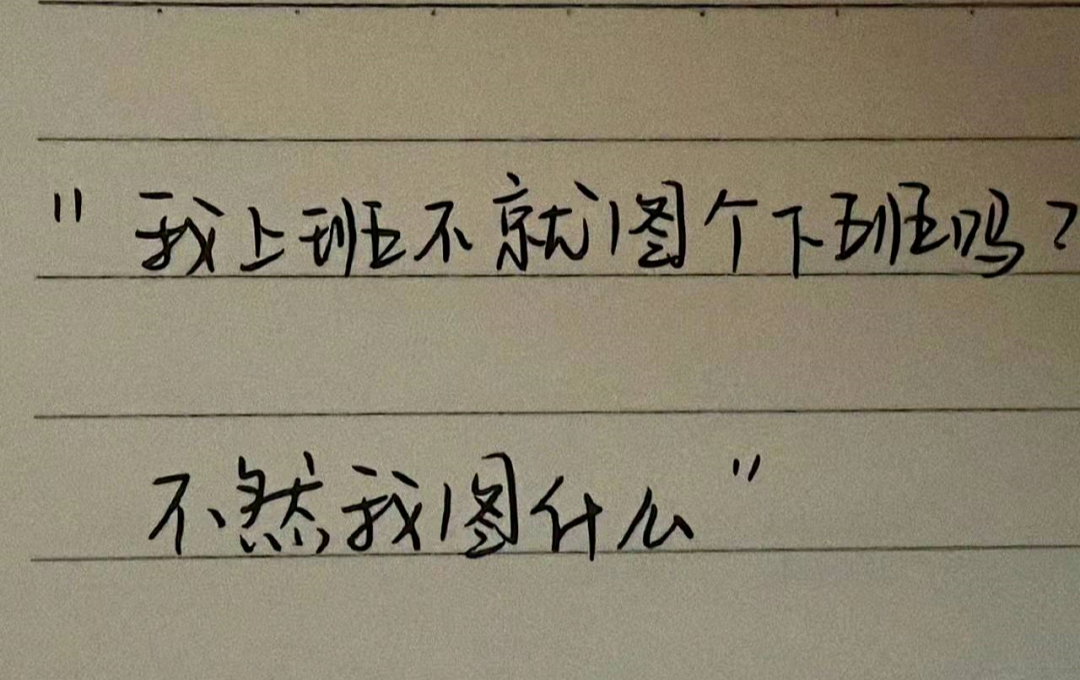 "我上班不就图个下班吗？
不然我图什么"